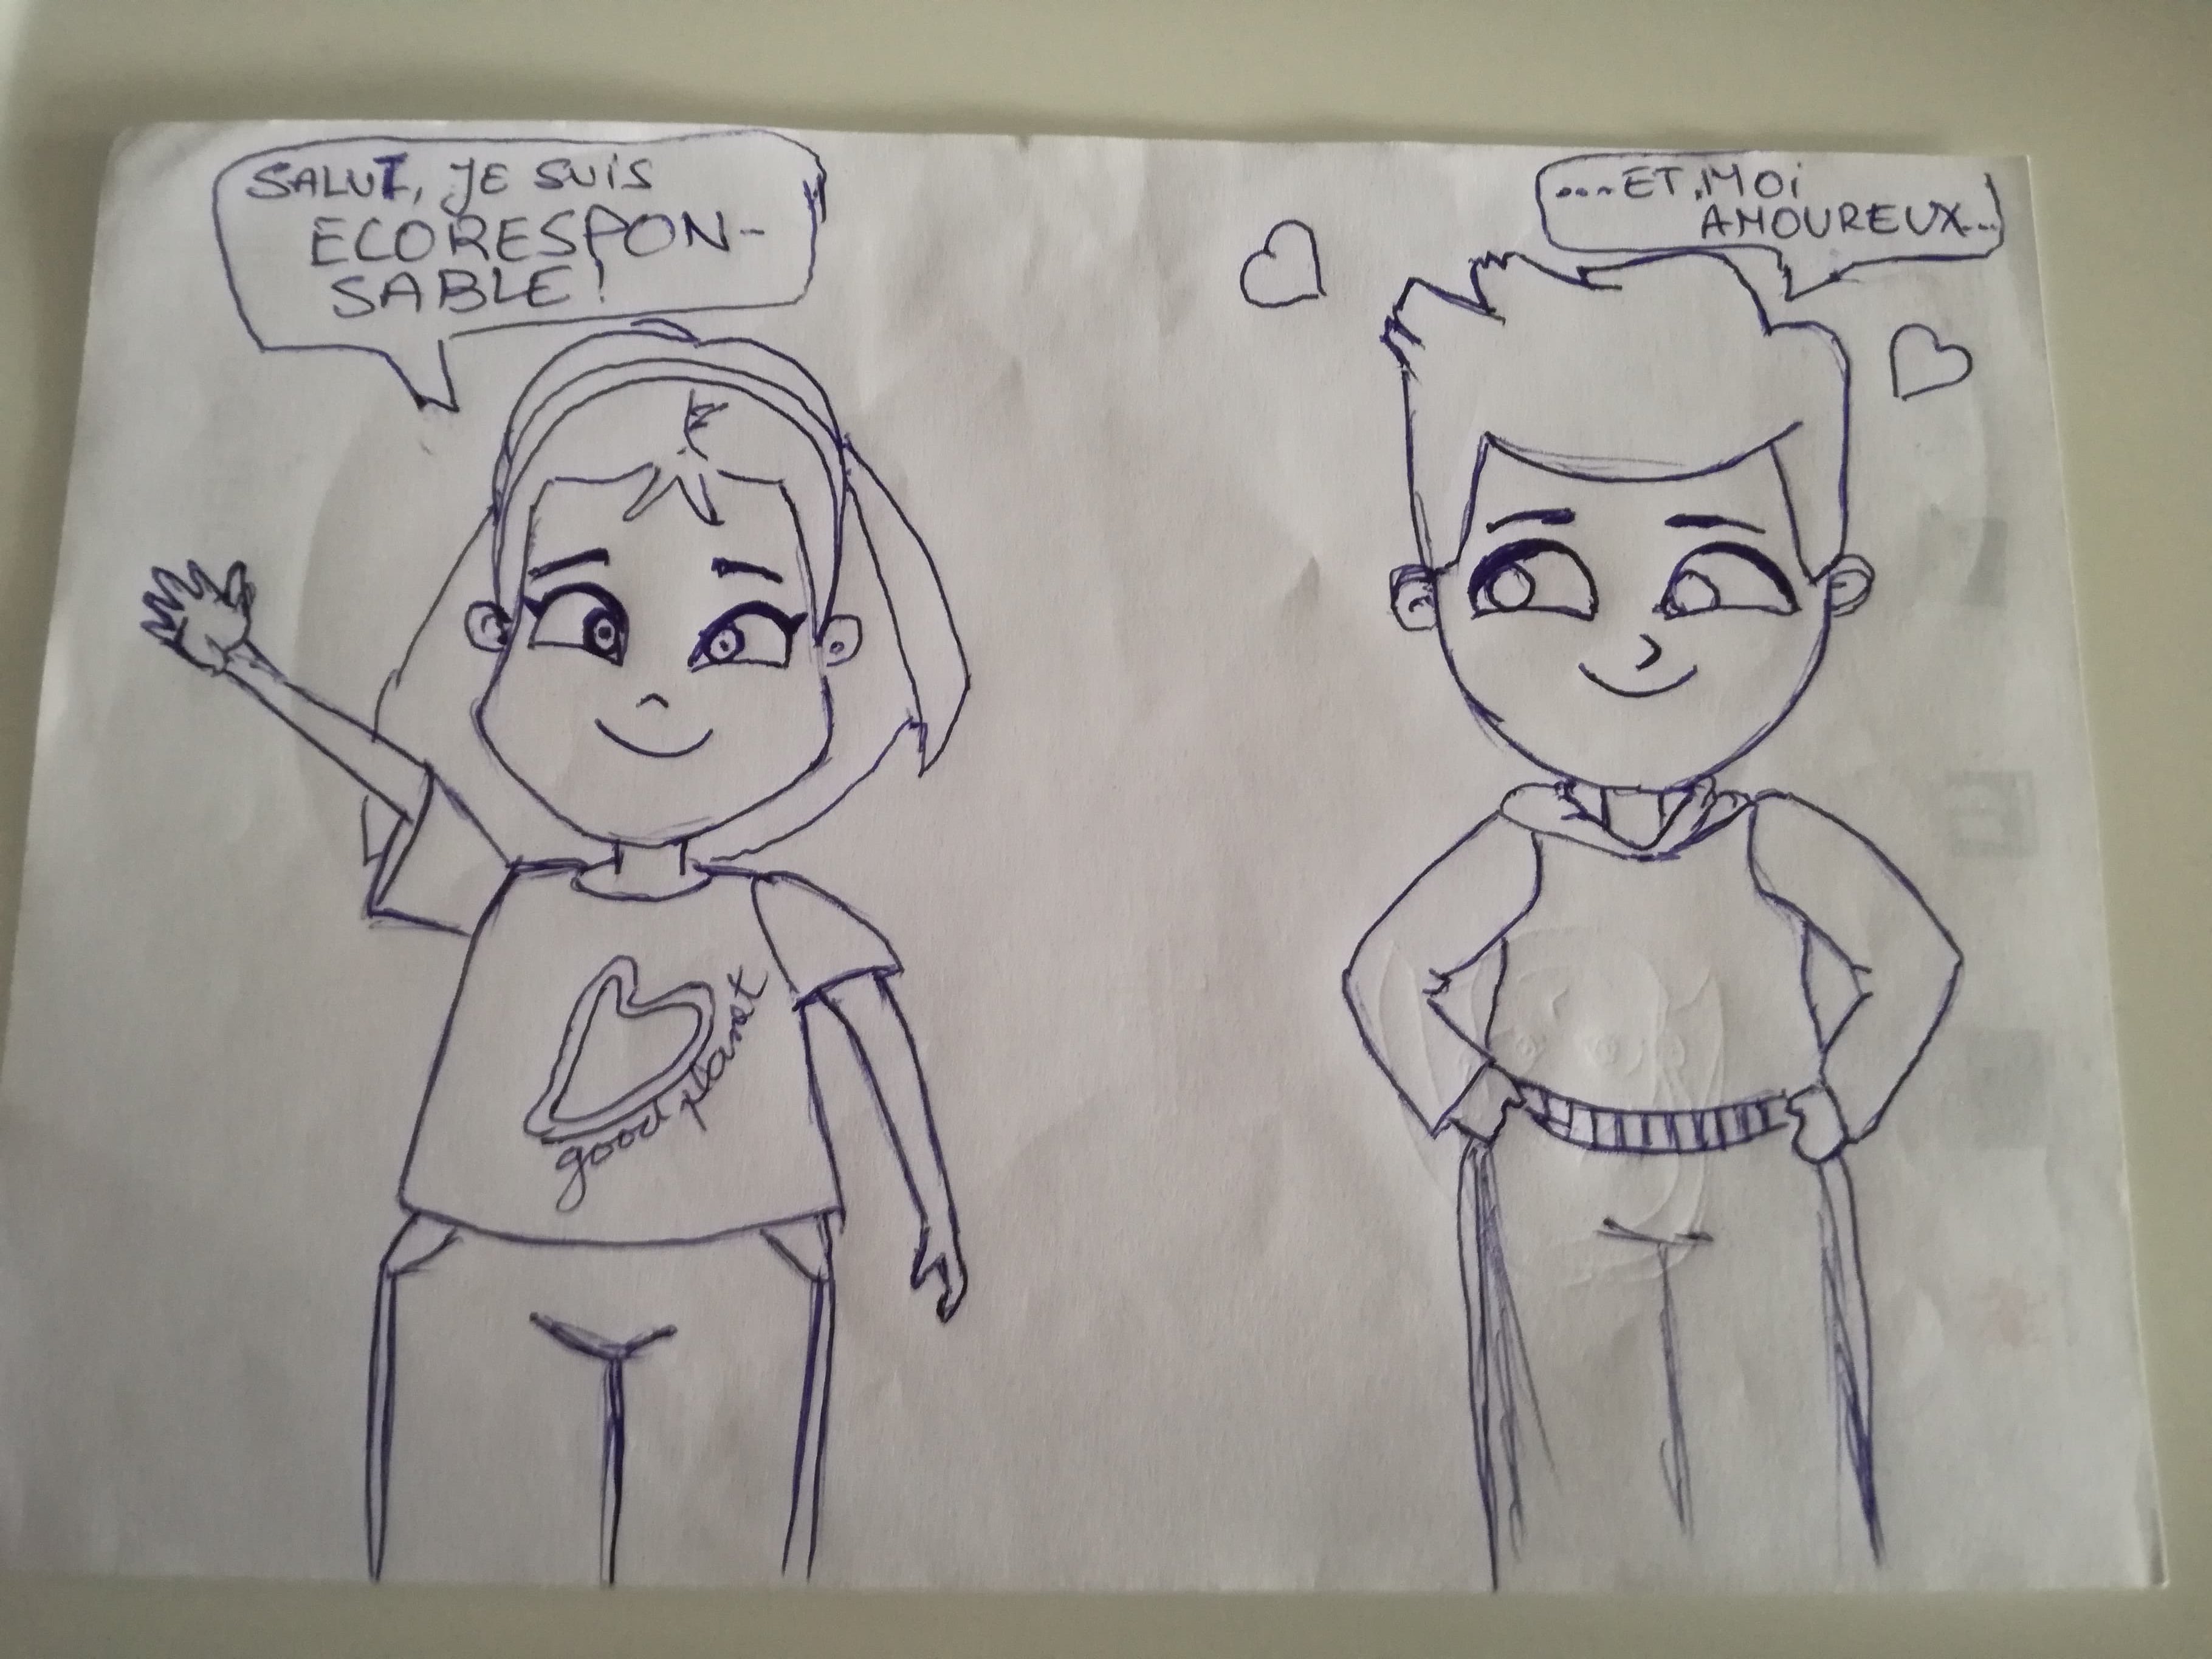 SALUT, JE SUIS
ECORESPON-
SABLE!
...ET MOI
AMOUREUX...
good planet